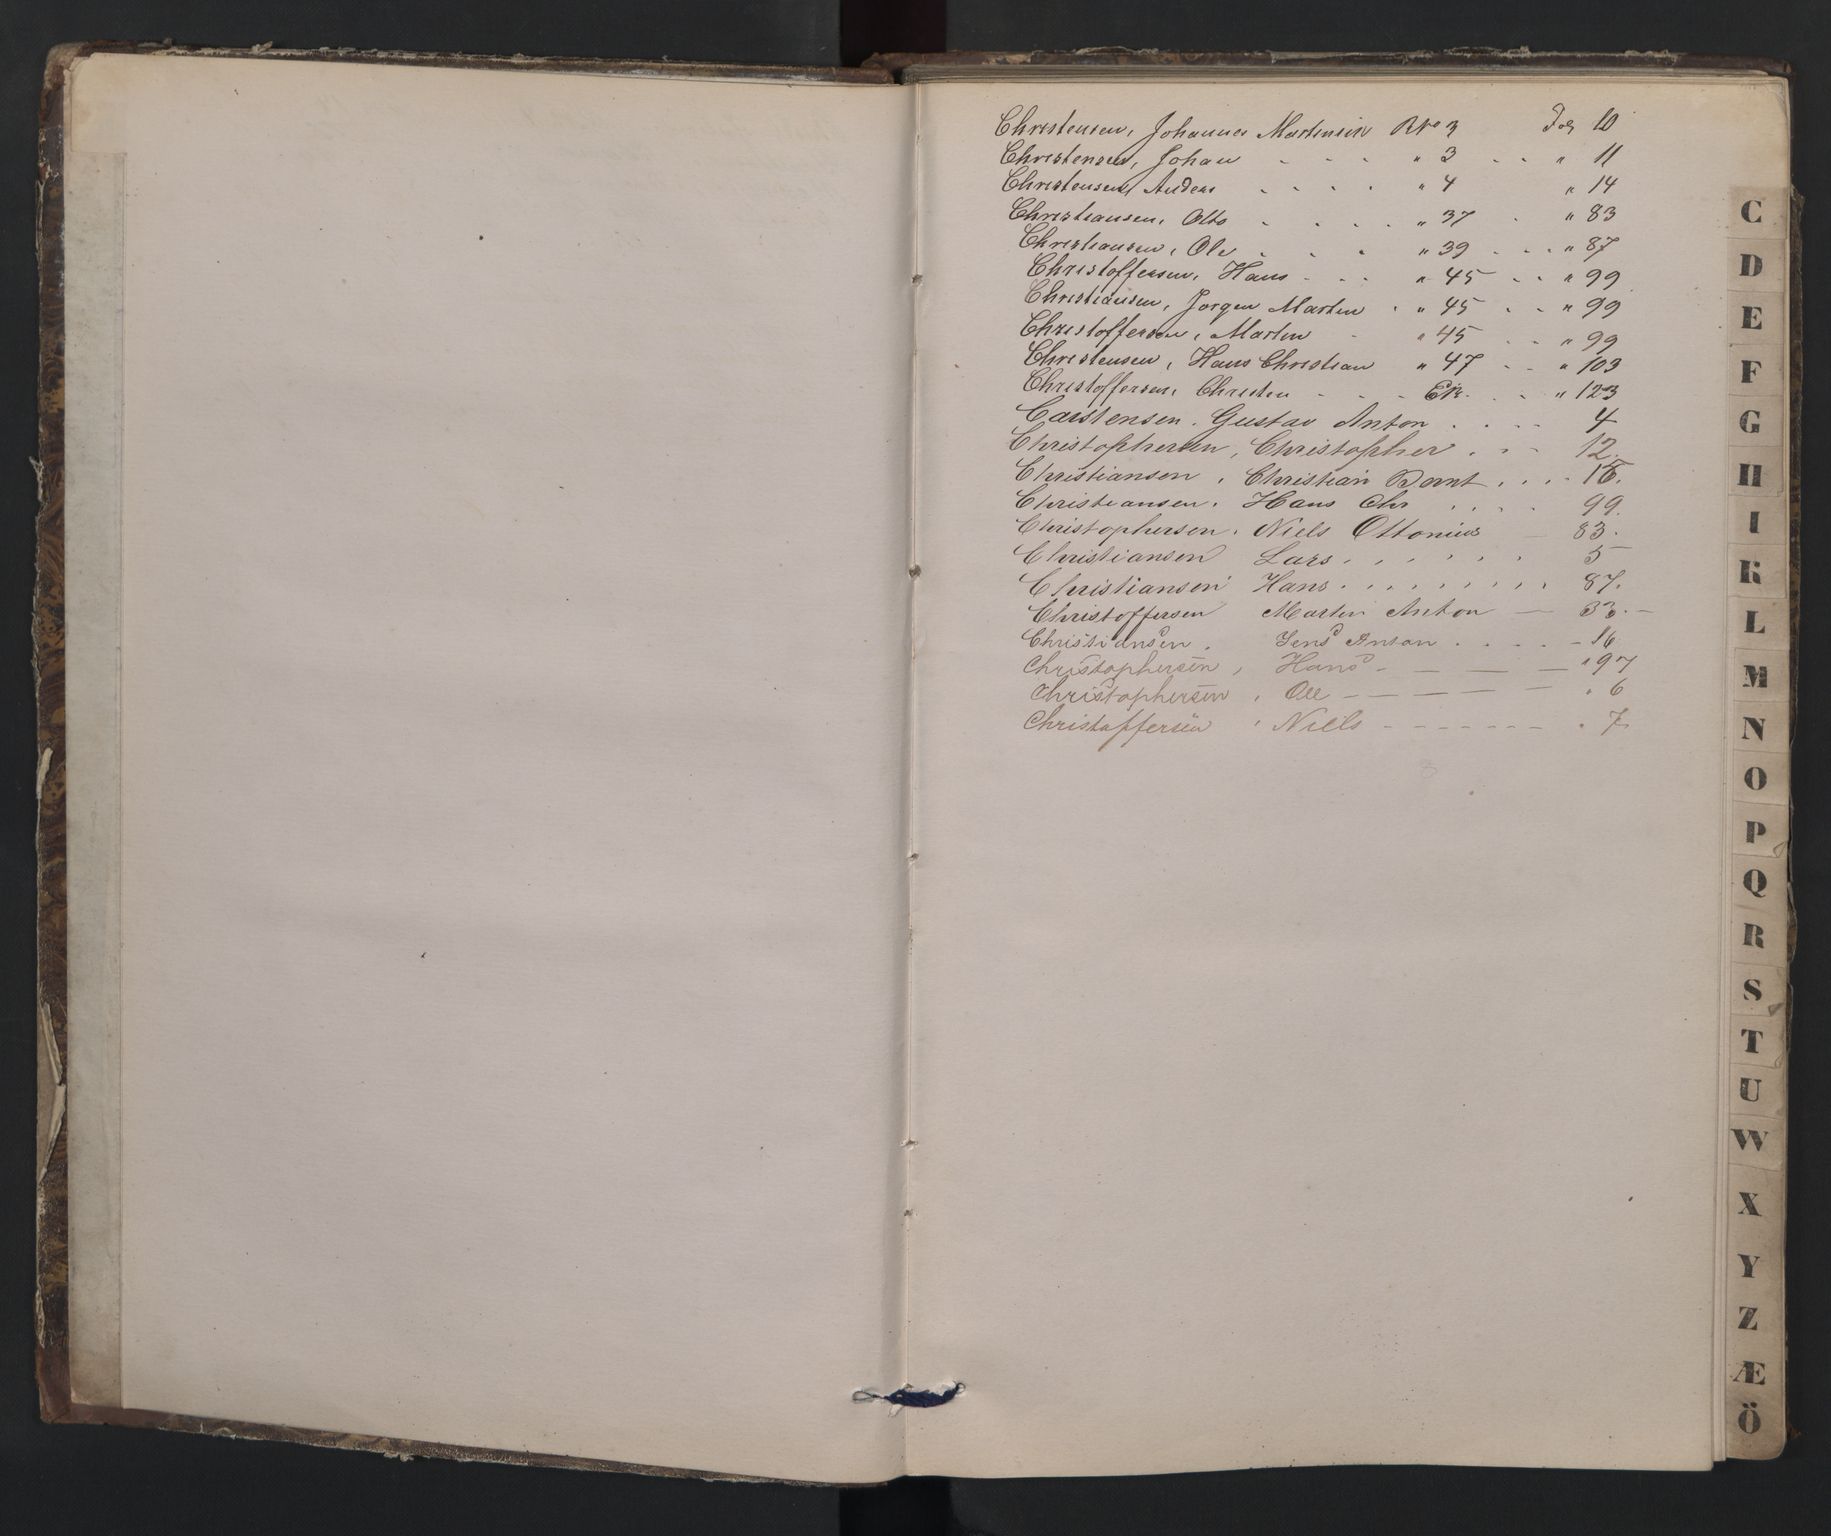 Christensen, Johannes Martinsen RNo 3 Fol 10
Christensen, Johan - - - " 3 - - " 11
Christensen, Anders - - - - " 4 " 14
Christiansen, Otto - - - - " 37 - " 83
Christiansen, Ole - - - " 39 - - - " 87
Christoffersen, Hans - - - " 45 - - " 99
Christiansen, Jorgen Martin - " 45 - - " 99
Christoffersen, Martin - " 45 - - " 99
Christensen, Hans Christian " 47 - - " 103
Christoffersen, Christen - - - - " 123
Carstensen, Gustav Anton - - - - 4
Christophersen, Christopher - - - 12.
Christiansen, Christian Bernt - - - - 16.
Christiansen, Hans Chr - - - - 99.
Christophersen, Niels Ottonius - 83.
Christiansen Lars - - - - - 5
Christiansen Hans - - - - - - - - 87.
Christoffersen Martin Anton — 33.—
Christiansen, Jens Anton - - - - - 16
Christophersen, Hans - — — — — " 97
Christophersen, Ole — — — — — " 6
Christoffersen, Niels - - - - - - - " 7
C
D
E
F
G
H
I
K
L
M
N
O
P
Q
R
S
T
U
W
X
Y
Z
Æ
Ö